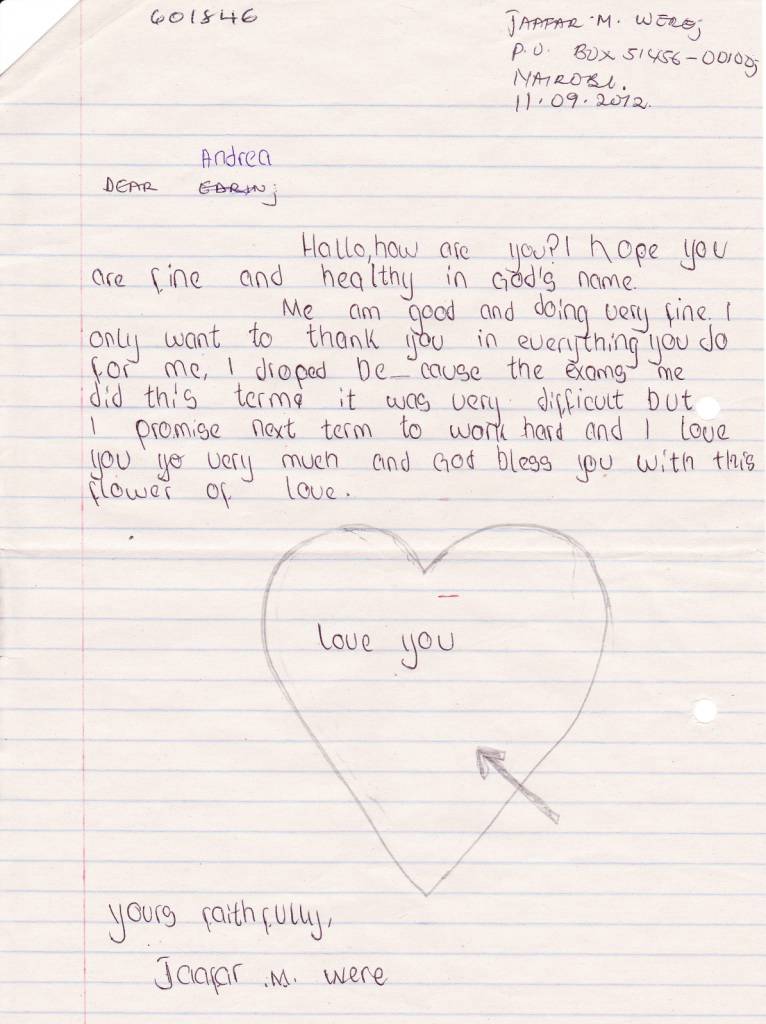 601846
JAAFAR .M. WERE;
P.O. BOX 51456-00100;
NAIROBI.
11.09.2012.
Andrea
DEAR ;
Hallo, how are you? I hope you
are fine and healthy in God's name.
Me am good and doing very fine. I
only want to thank you in everything you do
for me, I droped be_cause the exams me
did this terme it was very difficult but
I promise next term to work hard and I love
you yo very much and God bless you with this
flower of love.
love you
yours faithfully,
Jaafar .M. were